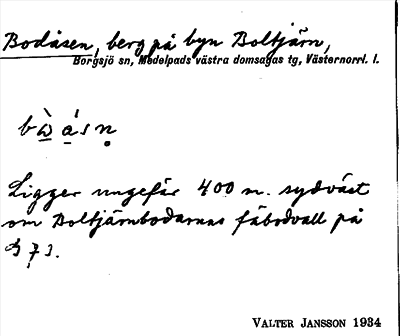 Bodåsen, berg på byn Boltjärn,
Borgsjö sn, Medelpads västra domsagas tg, Västernorrl. l.
Ligger ungefär 400 m. sydväst
om Boltjärnbodarnas fäbodvall på
VALTER JANSSON 1934